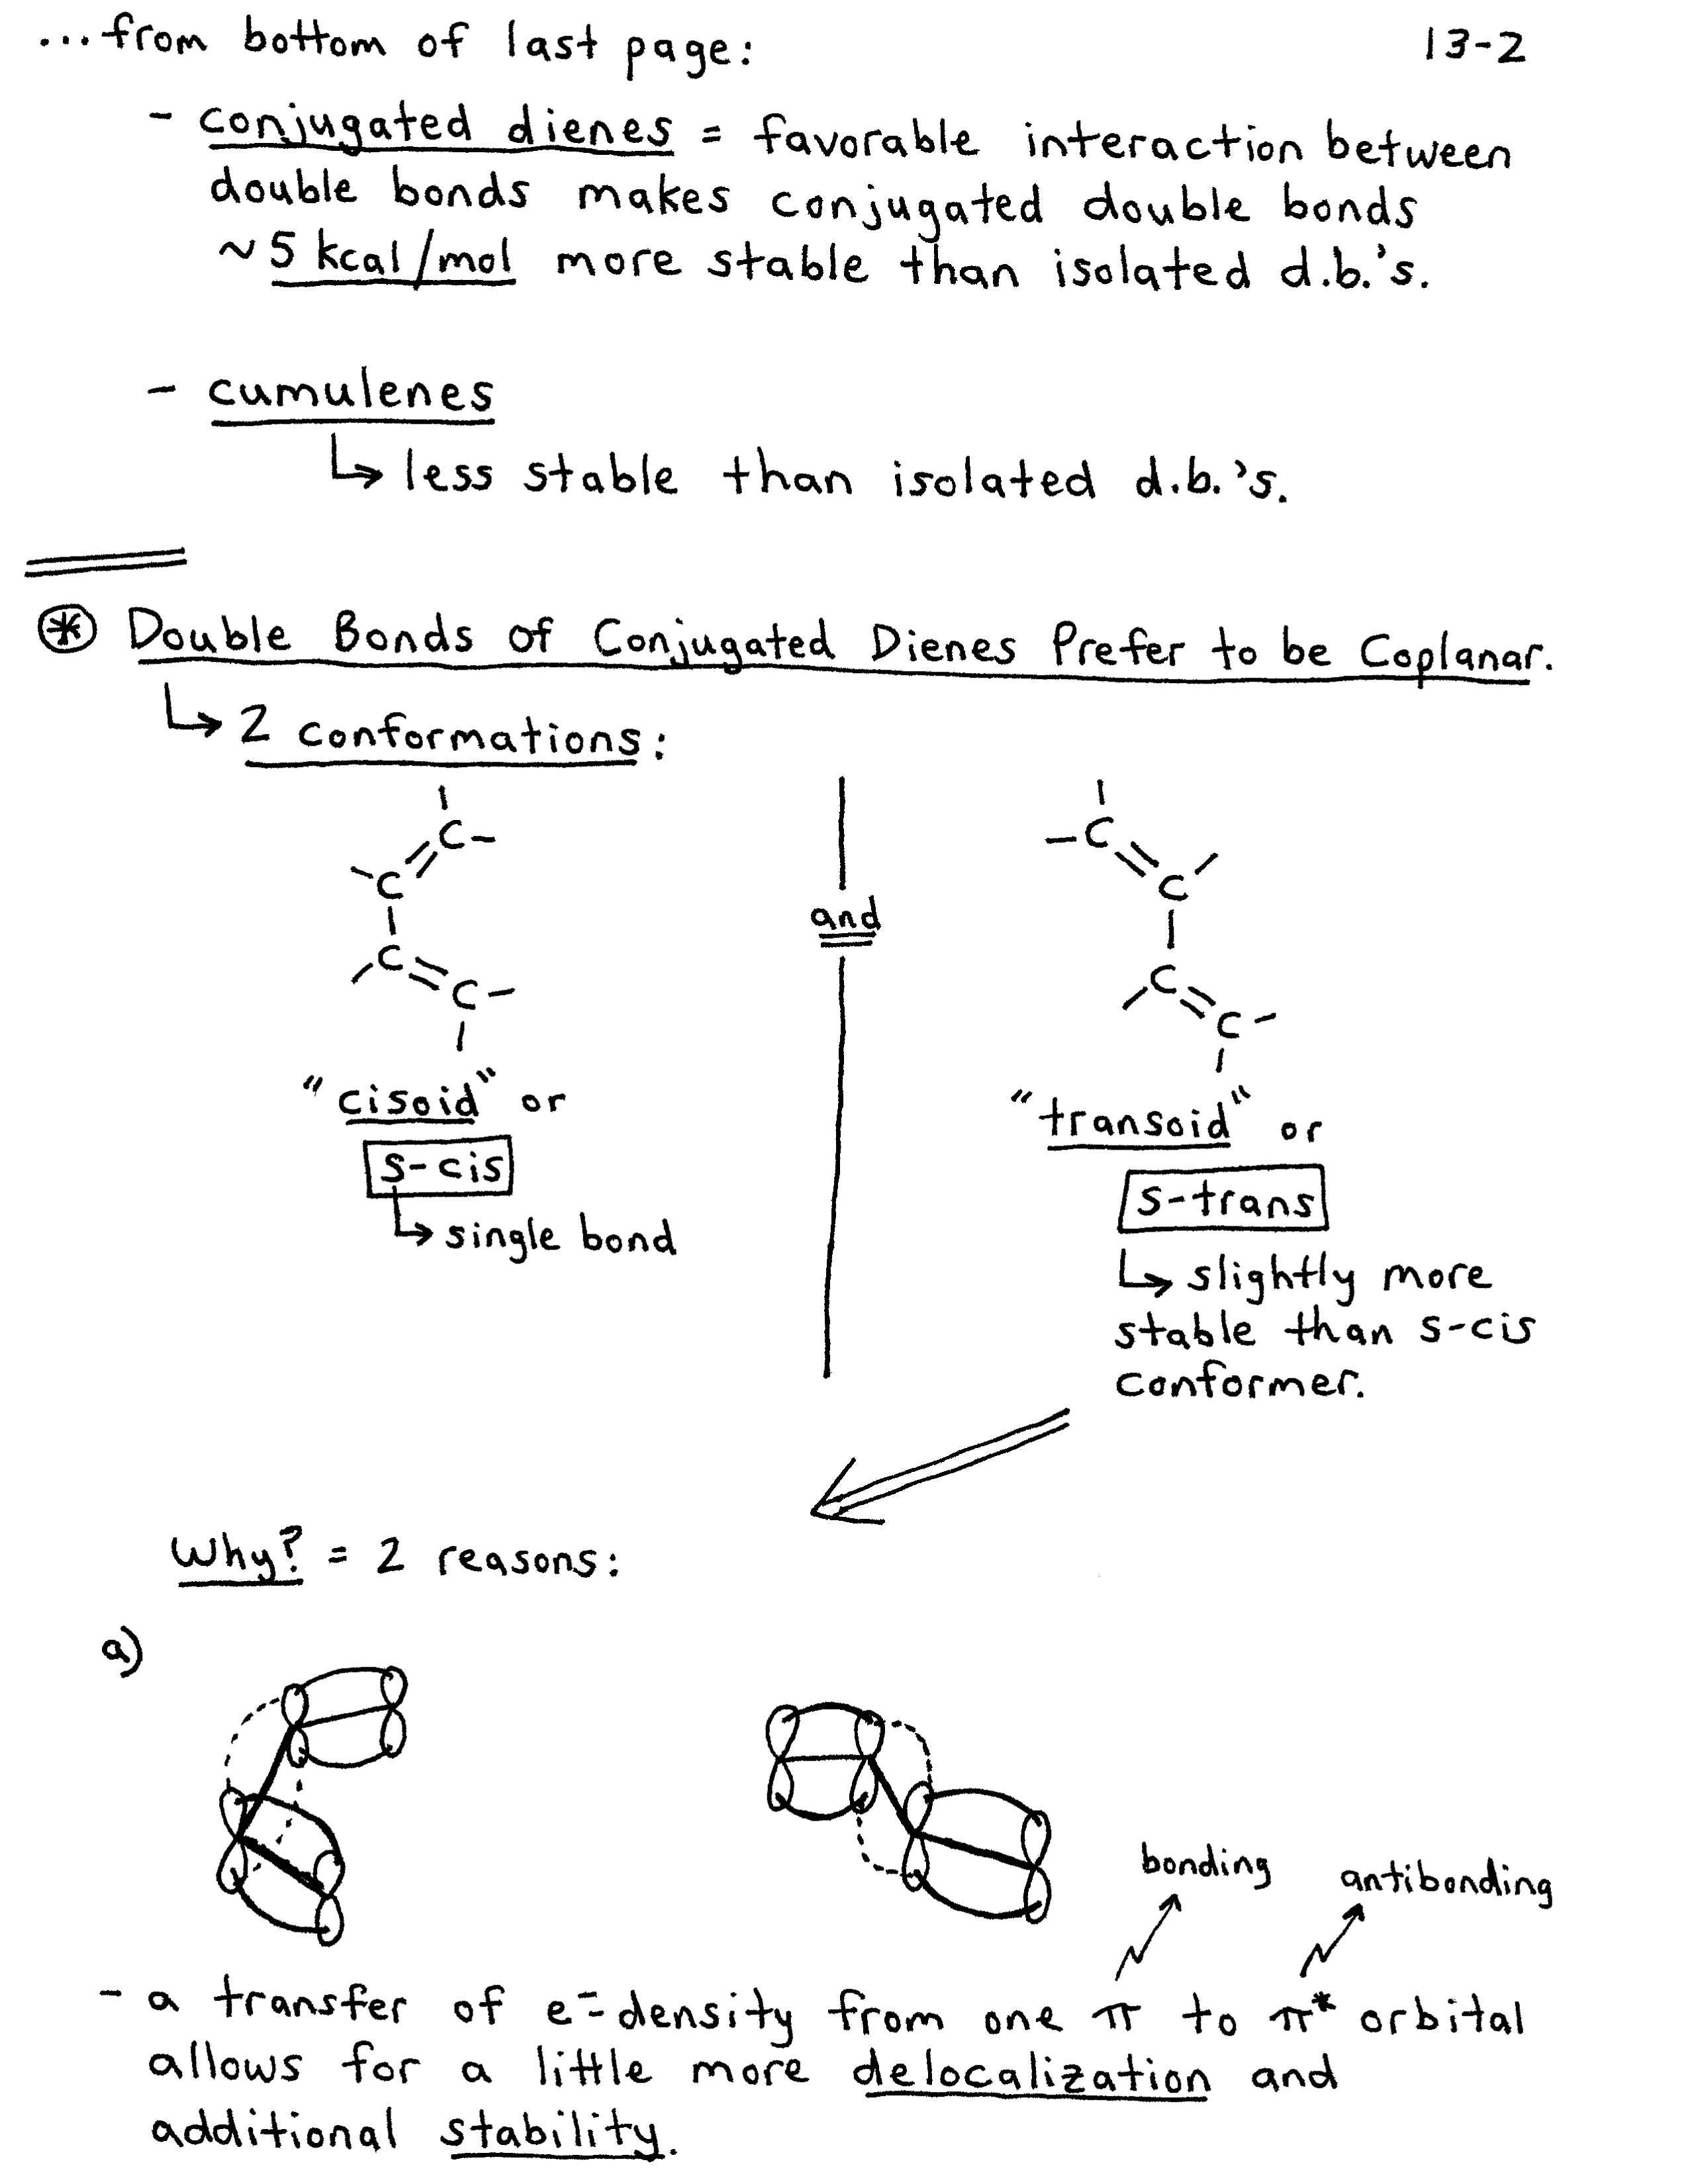 ...from bottom of last page:
13-2
- conjugated dienes = favorable interaction between
double bonds makes conjugated double bonds
~5 kcal/mol more stable than isolated d.b.'s.
- cumulenes
↳ less stable than isolated d.b.'s.
⊛ Double Bonds of Conjugated Dienes Prefer to be Coplanar.
↳ 2 conformations:
C
C
C
C
"cisoid" or
s-cis
↳ single bond
and
C
C
C
C
"transoid" or
s-trans
↳ slightly more
stable than s-cis
conformer.
Why? = 2 reasons:
a)
bonding
antibonding
- a transfer of e⁻-density from one π to π* orbital
allows for a little more delocalization and
additional stability.